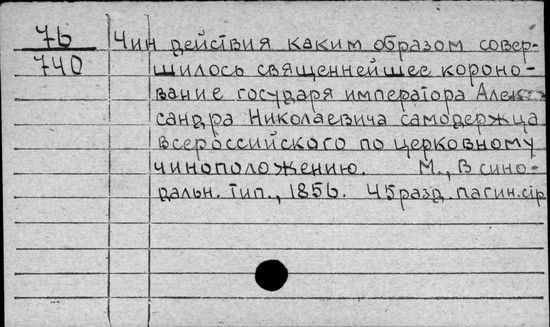 76 Чин действия каким образом совер-
740 шилось священнейшее короно-
вание государя императора Алек-
сандра Николаевича самодержца
всероссийского по церковному
чиноположению. М., В сино-
дальн. тип., 1856. 45 разд. пагин. стр